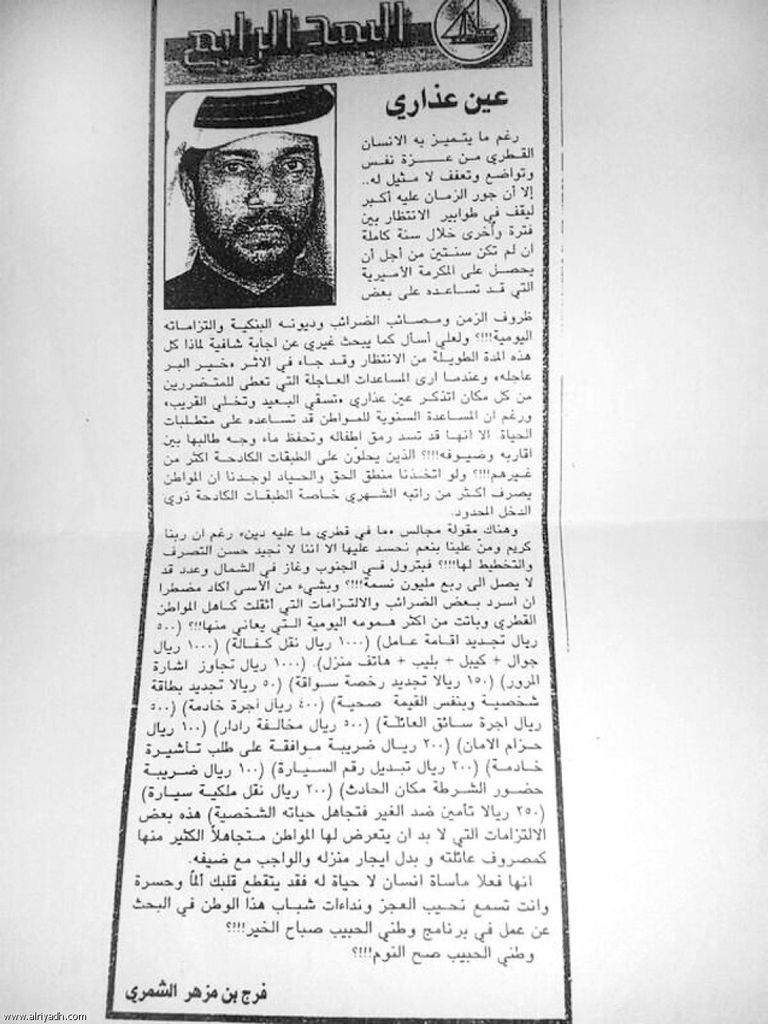 البعد الرابع
عين عذاري
رغم ما يتميز به الانسان
القطري من عزة نفس
وتواضع وتعفف لا مثيل له..
إلا أن جور الزمان عليه أكبر
ليقف في طوابير الانتظار بين
فترة وأخرى خلال سنة كاملة
ان لم تكن سنتين من أجل أن
يحصل على المكرمة الأميرية
التي قد تساعده على بعض
ظروف الزمن ومصائب الضرائب وديونه البنكية والتزاماته
اليومية!!!؟ ولعلي أسأل كما يبحث غيري عن اجابة شافية لماذا كل
هذه المدة الطويلة من الانتظار وقد جاء في الاثر «خير البر
عاجله» وعندما ارى المساعدات العاجلة التي تعطى للمتضررين
من كل مكان اتذكر عين عذاري «تسقي البعيد وتخلي القريب»
ورغم ان المساعدة السنوية للمواطن قد تساعده على متطلبات
الحياة. الا انها قد تسد رمق اطفاله وتحفظ ماء وجه طالبها بين
اقاربه وضيوفه!!!؟ الذين يحلون على الطبقات الكادحة اكثر من
غيرهم!!!؟ ولو اتخذنا منطق الحق والحياد لوجدنا ان المواطن
يصرف اكثر من راتبه الشهري خاصة الطبقات الكادحة ذوي
الدخل المحدود.
وهناك مقولة مجالس «ما في قطري ما عليه دين» رغم ان ربنا
كريم ومنّ علينا بنعم نحسد عليها الا اننا لا نجيد حسن التصرف
والتخطيط لها!!!؟ فبترول في الجنوب وغاز في الشمال وعدد قد
لا يصل الى ربع مليون نسمة!!!؟ وبشيء من الأسى اكاد مضطرا
ان اسرد بعض الضرائب والالتزامات التي أثقلت كاهل المواطن
القطري وباتت من اكثر همومه اليومية التي يعاني منها!!!؟ (٥٠٠
ريال تجديد اقامة عامل) (١٠٠٠ ريال نقل كفالة) (١٠٠٠ ريال
جوال + كيبل + بليب + هاتف منزل). (١٠٠٠ ريال تجاوز اشارة
المرور) (١٥٠ ريالا تجديد رخصة سواقة) (٥٠ ريالا تجديد بطاقة
شخصية وبنفس القيمة صحية) (٤٠٠ ريال أجرة خادمة) (٥٠٠
ريال اجرة سائق العائلة) (٥٠٠ ريال مخالفة رادار) (١٠٠ ريال
حزام الامان) (٢٠٠ ريال ضريبة موافقة على طلب تأشيرة
خادمة) (٢٠٠ ريال تبديل رقم السيارة) (١٠٠ ريال ضريبة
حضور الشرطة مكان الحادث) (٢٠٠ ريال نقل ملكية سيارة)
(٢٥٠ ريالا تأمين ضد الغير فتجاهل حياته الشخصية) هذه بعض
الالتزامات التي لا بد ان يتعرض لها المواطن متجاهلاً الكثير منها
كمصروف عائلته و بدل ايجار منزله والواجب مع ضيفه.
انها فعلا مأساة انسان لا حياة له فقد يتقطع قلبك ألماً وحسرة
وانت تسمع نحيب العجز ونداءات شباب هذا الوطن في البحث
عن عمل في برنامج وطني الحبيب صباح الخير!!!؟
وطني الحبيب صح النوم!!!؟
فرج بن مزهر الشمري
www.alriyadh.com